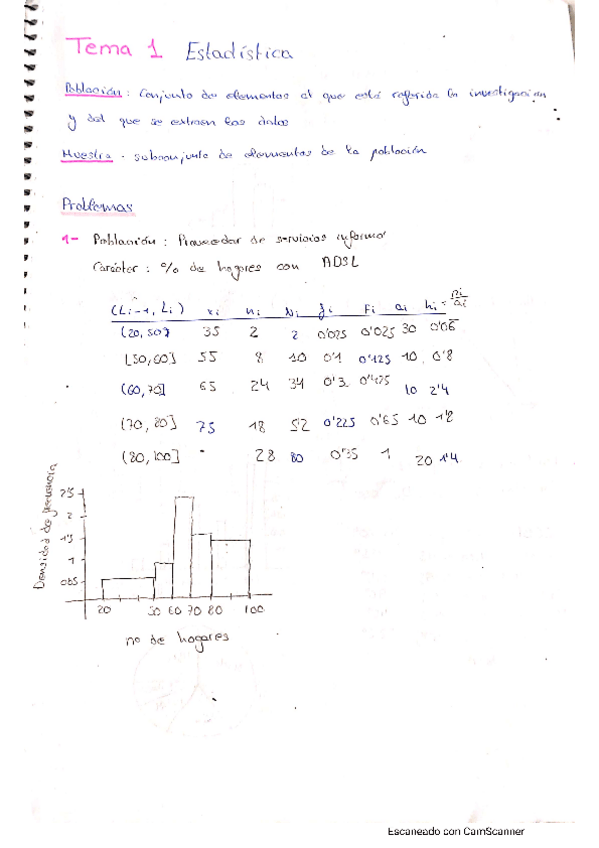 Tema 1 Estadística
Población: Conjunto de elementos al que está referida la investigacion
y del que se extraen los datos
Muestra - subconjunto de elementos de la población
Problemas
1- Población: Proveedor de servicios informa
Carácter: % de hogares con ADSL
(Li-1, Li) xi ni Ni fi Fi ai hi = ni/ai
(20, 50] 35 2 2 0'025 0'025 30 0'06
[50,60] 55 8 10 0'1 0'125 10 0'8
(60,70] 65 24 34 0'3 0'425 10 2'4
(70, 80] 75 18 52 0'225 0'65 10 1'8
(80,100] 28 80 0'35 1 20 1'4
Densidad de frecuencia
2'5
2
1'5
1
20 50 60 70 80 100
no de hogares
Escaneado con CamScanner